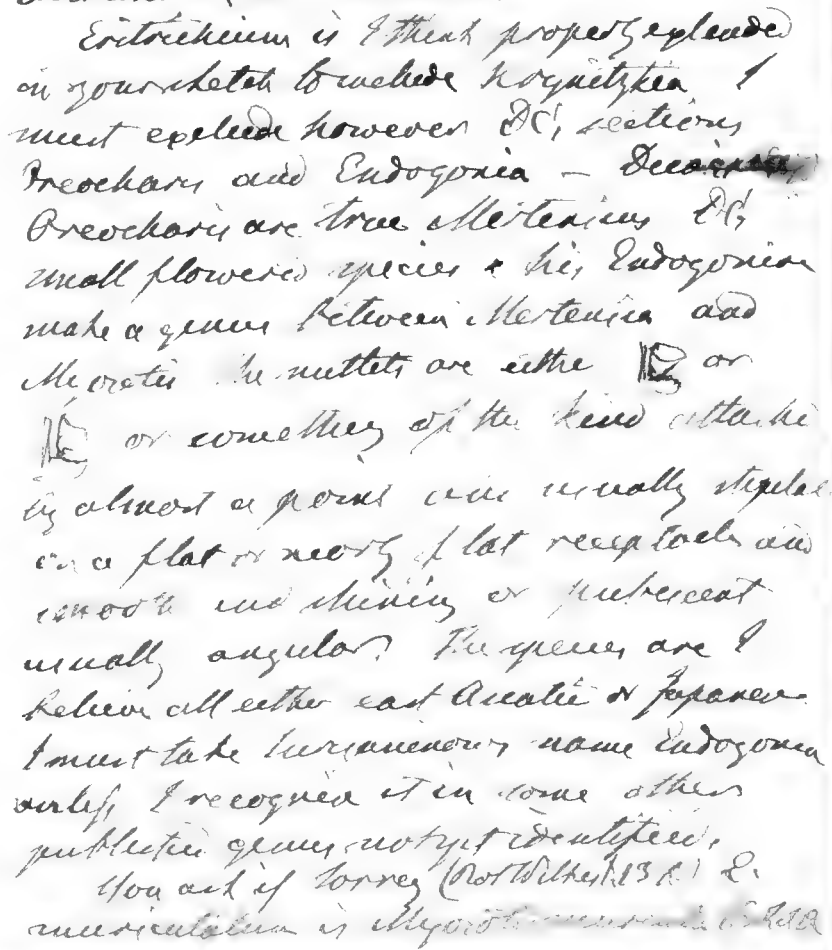 Eritrichium is I think properly extended
in your sketch to include Krynitzkia I
must exclude however DC's sections
Oreocharis and Endogonia —
Oreocharis are true Mertensias DC's
small flowered species & his Endogonia
make a genus between Mertensia and
Myosotis the nutlets are either or
or something of the kind attached
by almost a point and usually stipitate
on a flat or nearly flat receptacle and
smooth and shining or pubescent
usually angular. The species are I
believe all either east Asiatic or Japanese
I must take name Endogonia
unless I recognise it in some other
published genus not yet identified.
You ask if Torrey (Bot Wilkes) E.
muriculatum is